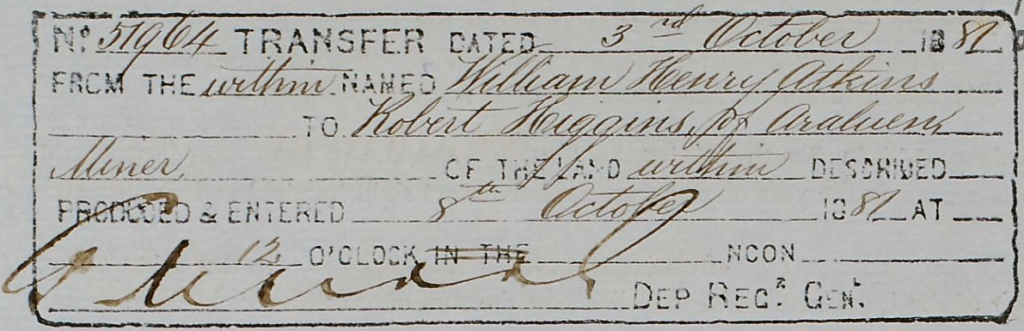 No. 51964 TRANSFER DATED 3rd October 1881
FROM THE within NAMED William Henry Atkins
TO Robert Higgins, of Araluen,
Miner, OF THE LAND within DESCRIBED
PRODUCED & ENTERED 8th October 1881 AT
12 O'CLOCK IN THE NOON
DEP REGR GENL